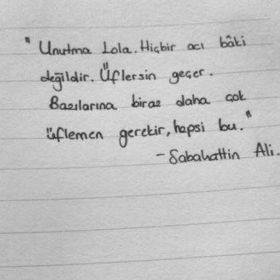 " Unutma Lola. Hiçbir acı bâki
değildir. Üflersin geçer.
Bazılarına biraz daha çok
üflemen gerekir, hepsi bu."
- Sabahattin Ali.